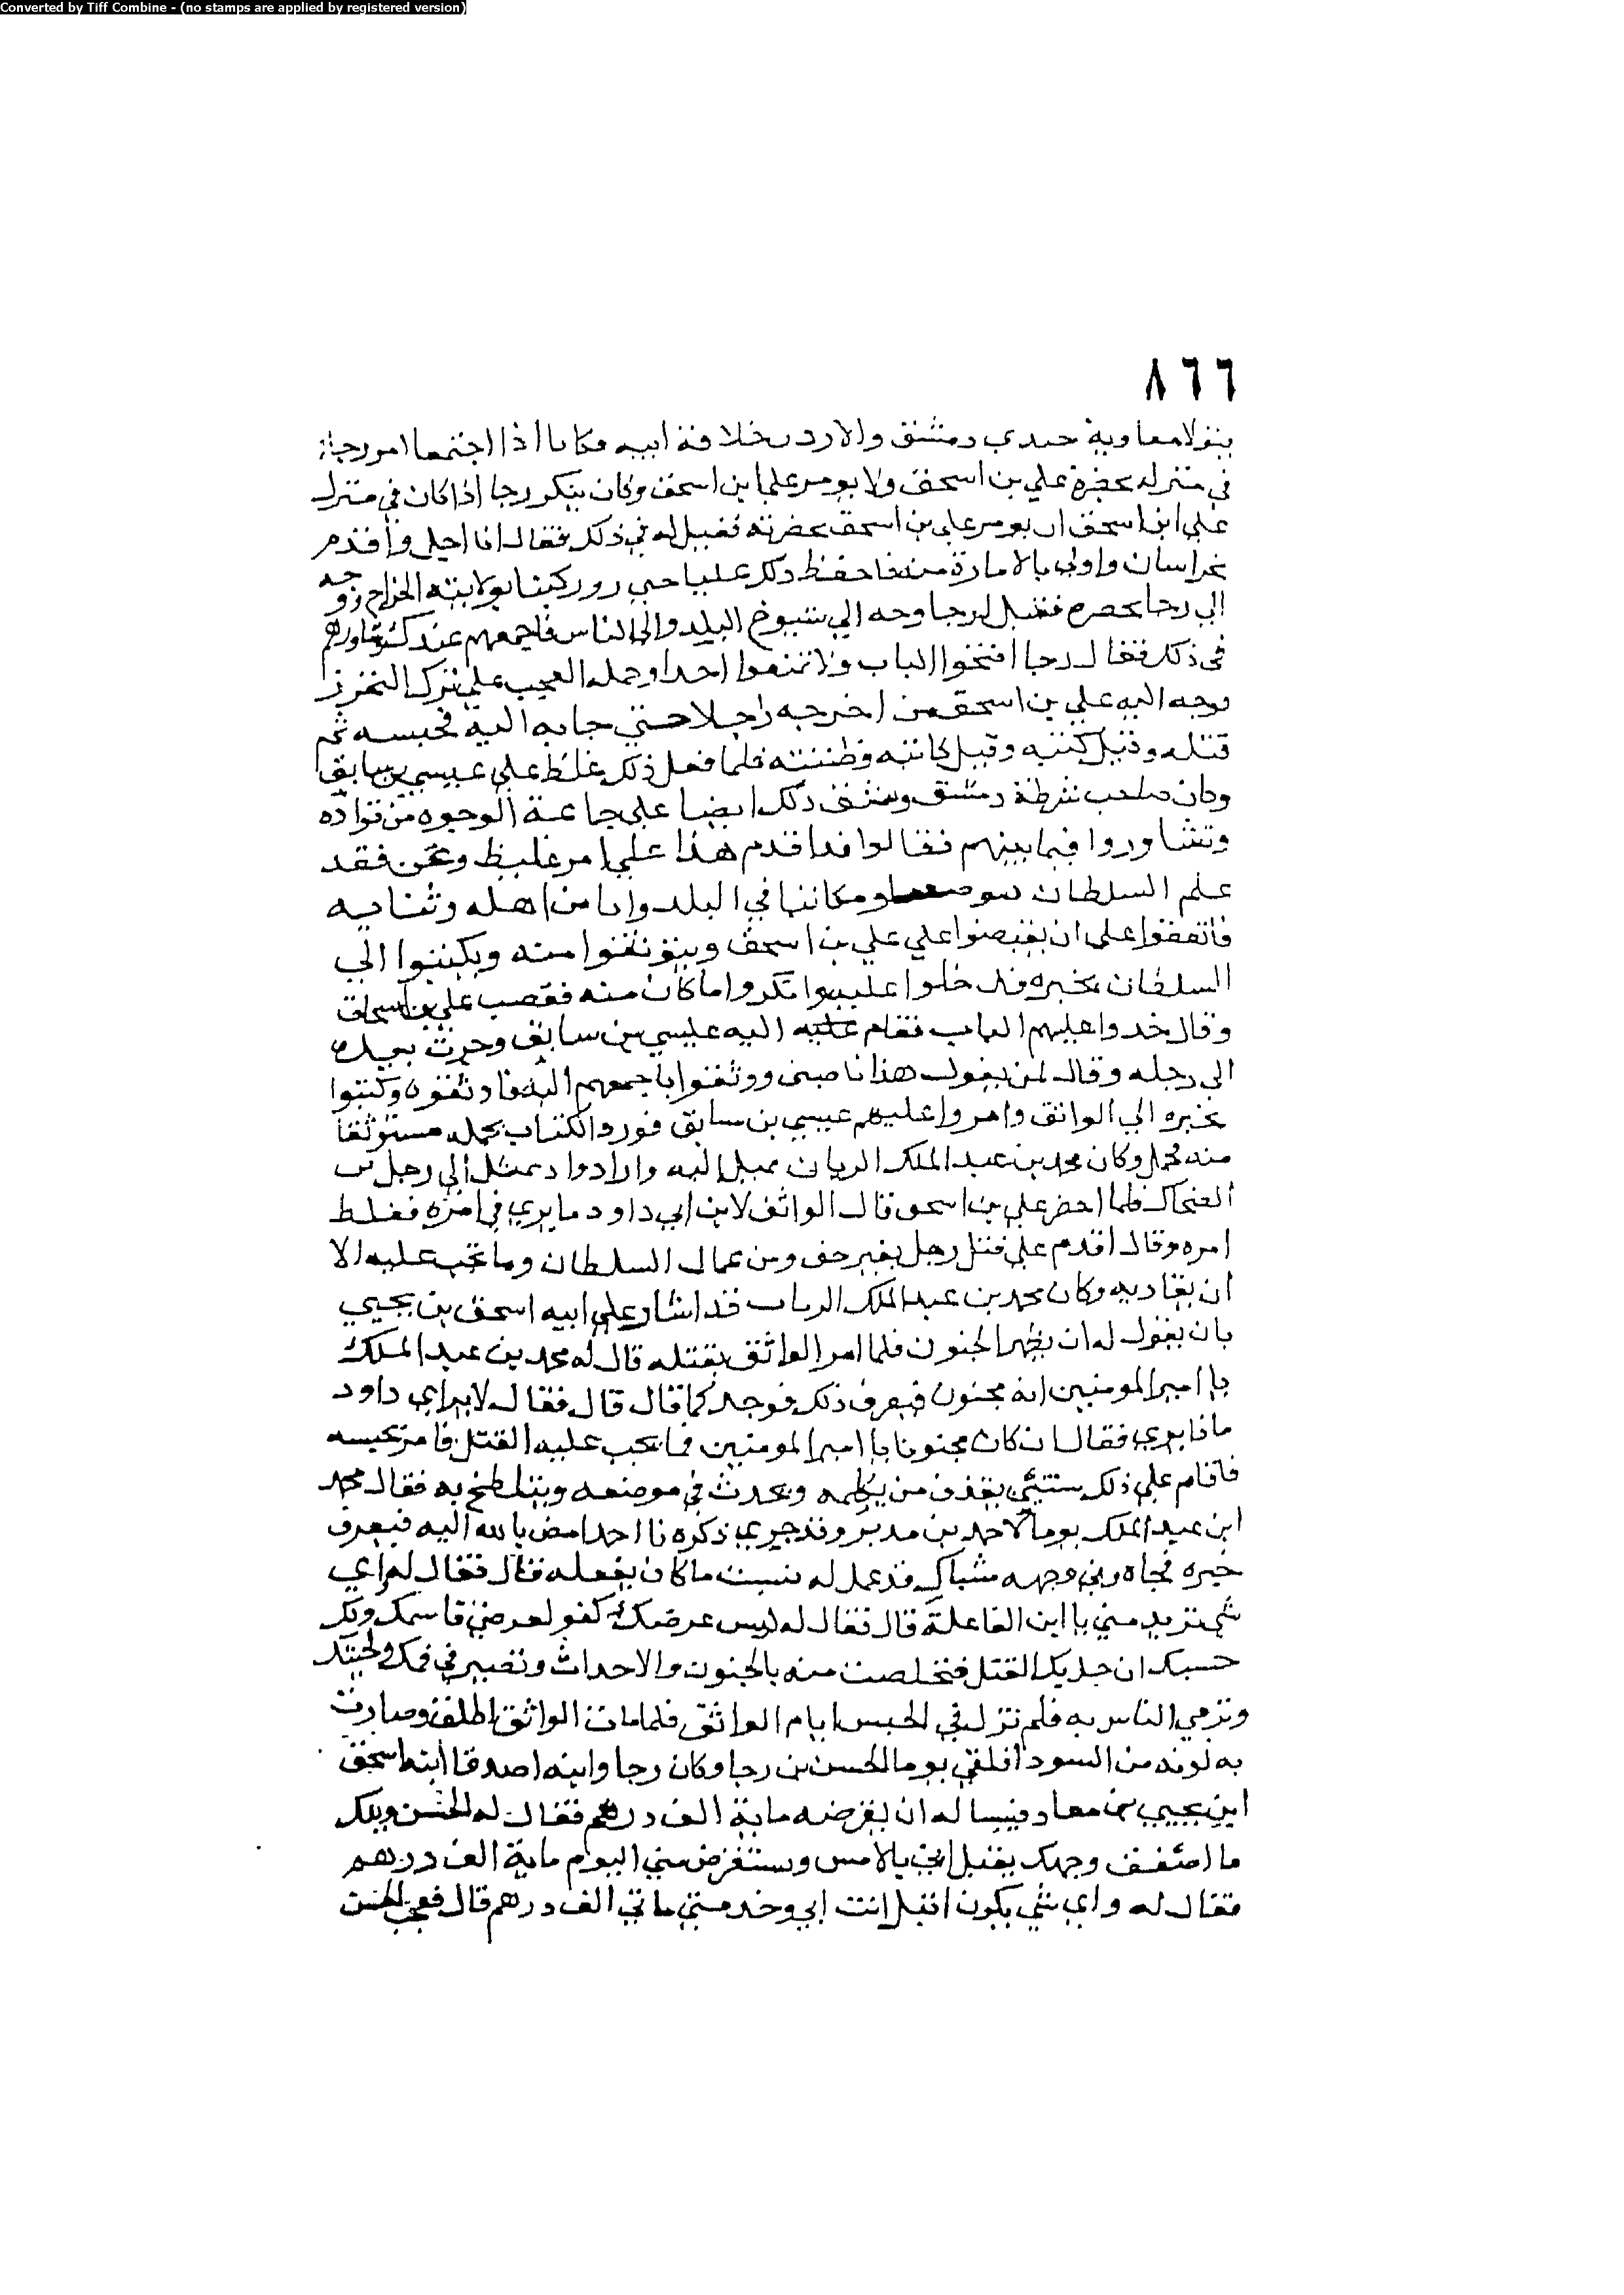 Converted by Tiff Combine - (no stamps are applied by registered version)
٨٦٦
يتولا معاوية جندي دمشق والاردن خلافة ابيه وكانا اذا اجتمعا امر رجا
في منزله بحضرة علي بن اسحق ولا يومر علي ابن اسحق وكان ينكر رجا اذا كان في منزل
علي ابن اسحق ان يومر علي بن اسحق بحضرته فقيل له في ذلك فقال انا اجل واقدم
بخراسان واولى بالامارة منه فاحفظ ذلك عليا حتى كتبا بولايته الخراج
الي رجا بحضره فقيل لرجا وجه الي شيوخ البلد والى الناس فاجمعهم عندك وشاورهم
في ذلك فقال رجا افتحوا الباب ولا تمنعوا احدا وحمله العجب علي ترك التحرز
فوجه اليه علي بن اسحق من اخرجه راجلا حتي جا به اليه فحبسه ثم
قتله وقتل كتبه وقيل كاتبه فلما فعل ذلك غلظ علي عيسي بن سابق
وكان صاحب شرطة دمشق وشق ذلك ايضا علي جماعة الوجوه من قواده
وتشاوروا فيما بينهم فقالوا قد اقدم هذا علي امر غليظ ونحن فقد
علم السلطان ومكاننا في البلد وانا من اهله وثنايه
فاتفقوا على ان يقبضوا علي علي بن اسحق ويتوثقوا منه ويكتبوا الي
السلطان بخبره فدخلوا عليه وانكروا ما كان منه فغصب علي بن اسحاق
وقال خدوا عليهم الباب فقام اليه عيسي بن سابق
الى رجله وقال لمن يقول هذا ووثقوا باجمعهم اليه فاوثقوه وكتبوا
بخبره الي الواثق وامروا عليهم عيسي بن سابق فورد الكتاب بحمله مستوثقا
منه فحمل وكان محمد بن عبد الملك الزيات يميل اليه وارادوا
فلما احضر علي بن اسحق قال الواثق لابن ابي داود ما يري في امره فغلظ
امره وقال اقدم علي قتل رجل بغير حق ومن عمال السلطان وما يجب عليه الا
ان يقاد به وكان محمد بن عبد الملك الزيات قد اشار علي ابيه اسحق بن يحيي
بان يقول له ان يظهر الجنون فلما امر الواثق بقتله قال له محمد بن عبد الملك
يا امير المومنين انه مجنون فيعرف ذلك فوجد كما قال قال فقال لابن ابي داود
ماذا يري فقال ان كان مجنونا يا امير المومنين فما يجب عليه القتل فامر بحبسه
فاقام علي ذلك سنتين يقذف من يكلمه ويحدث في موضعه ويتلطخ به فقال محمد
ابن عبد الملك يوما لاحمد بن مدبر وقد جري ذكره يا احمد امض بالله اليه فتعرف
خبره فجاه وفي وجهه مشباك قد عمل له بسبب ما كان يفعله قال فقال له اي
شي تريد مني يا ابن الفاعلة قال فقال له ليس عرضك كفو لعرضي فاسمك ويلك
حسبك ان جل بك القتل فتخلصت منه بالجنون والاحداث وتصيره في فمك ولحيتك
وترمي الناس به فلم تزل في الحبس ايام الواثق فلما مات الواثق اطلق وصارت
به لونه من السودا فلقي يوما الحسن بن رجا وكان رجا وابنه اصدقا ابنه اسحق
ابن يحيي بن معاد فيساله ان يقرضه ماية الف درهم فقال له الحسن ويلك
ما اصفق وجهك يقتل ابي بالامس وستقرض مني اليوم ماية الف درهم
فقال له واي شي يكون اقتل انت ابي وخد مني ماتي الف درهم قال فعجب الحسن